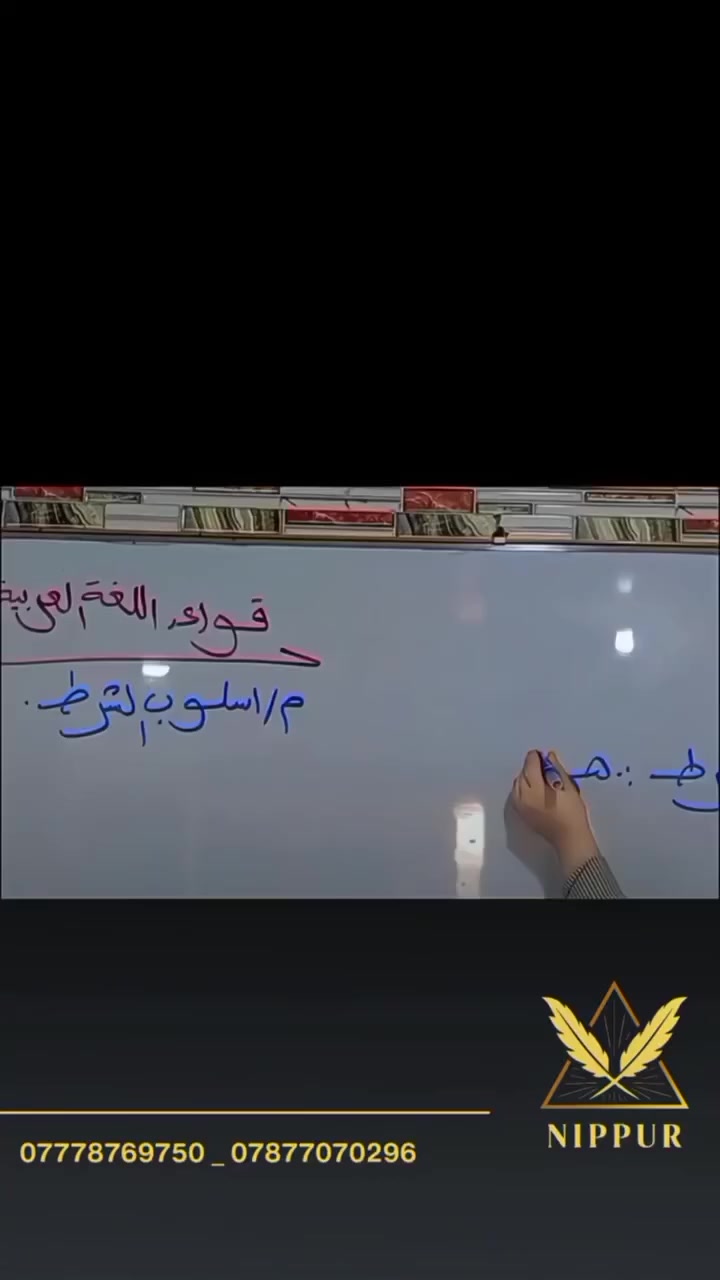 قواعد اللغة العربية
م/اسلوب الشرط.
رط : هـ
07778769750 _ 07877070296
NIPPUR